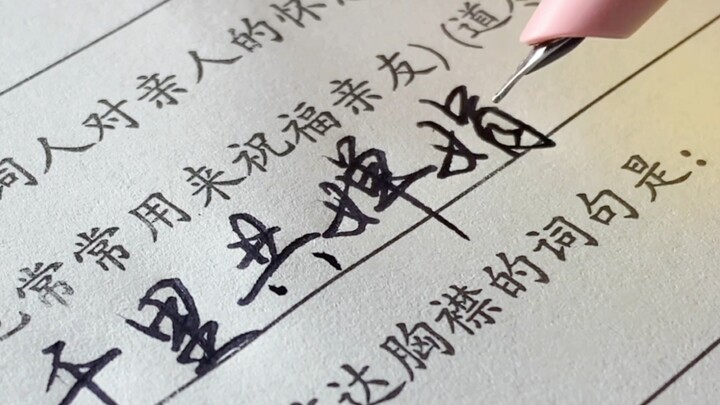 词人对亲人的怀
常常用来祝福亲友)(道
千里共婵娟
达胸襟的词句是: